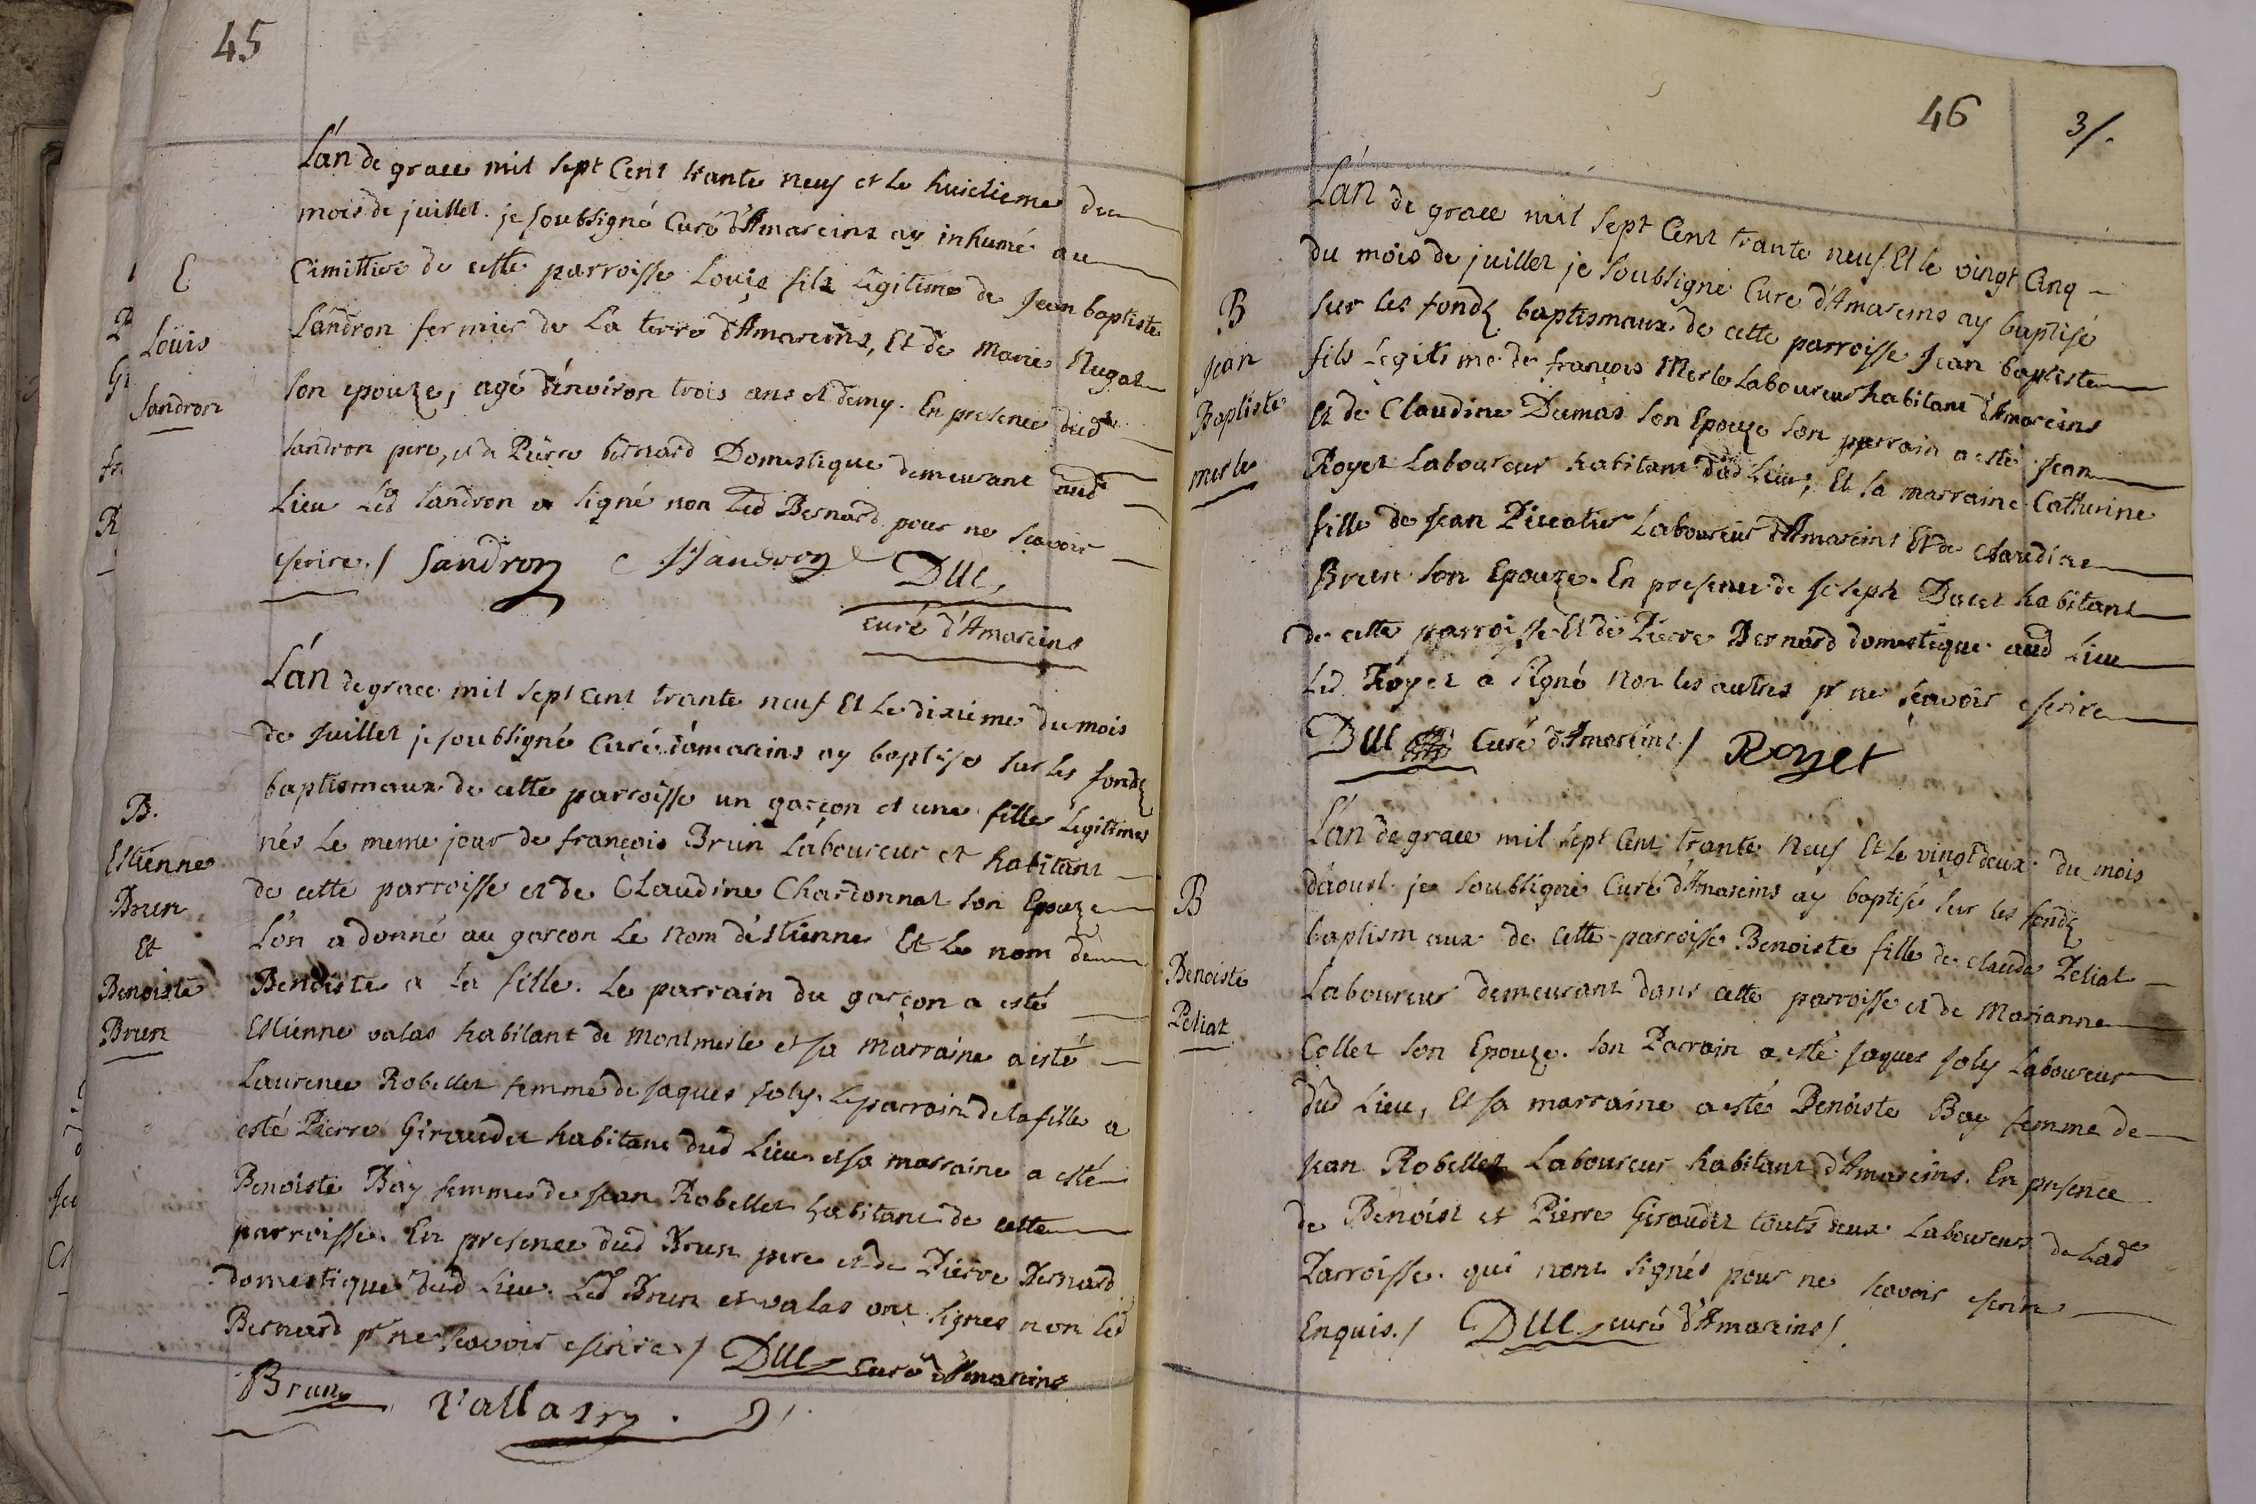 45
L'an de grace mil sept Cent trante neuf et le huictieme du
mois de juillet. je soubsigné Curé d'Amareins ay inhumé au
Cimittiere de cette parroisse Louis fils legitime de Jean baptiste
Sandron fermier de La terre d'Amareins, Et de Marie Nugat
son epouze, agé d'environ trois ans et demy. En presence dud
Sandron pere, et de Pierre bernard Domestique demeurant aud
Lieu Led Sandron a signé non Led Bernard pour ne scavoir
escrire./ Sandron Sandron Duc
curé d'Amareins
E
Loüis
Sandron
L'an de grace mil sept cent trante neuf Et Le dixieme du mois
de Juillet je soubsigné Curé d'amareins ay baptisé sur les fonds
baptismaux de cette parroisse un garçon et une fille Legitimes
nés Le meme jour de françois Brun Laboureur et habitant
de cette parroisse et de Claudine Chardonnat son Epouze
L'on a donné au garcon Le nom d'estienne Et Le nom de
Benoiste a La fille. Le parrain du garçon a esté
Estienne valas habitant de Montmerle et sa Marraine a esté
Laurence Robellet femme de Jaques Joly. Le parrain de la fille a
esté Pierre Giraudet habitant dud Lieu. et sa marraine a esté
Benoiste Bay femme de Jean Robellet habitant de cette
parroisse. En presence dud Brun pere et de Pierre Bernard
domestique dud Lieu. Led Brun et valas ont signes non Led
Bernard pr ne scavoir escrire./ Duc Curé d'Amareins
Brun Vallasry.
B.
Estienne
Brun
Et
Benoiste
Brun
46
3/.
L'an de grace mil sept Cent trante neuf Et le vingt Cinq
du mois de juillet je soubsigné Curé d'Amareins ay baptisé
sur les fonds baptismaux de cette parroisse Jean baptiste
fils Legitime de françois Merle Laboureur habitant d'Amareins
Et de Claudine Dumas son Epouze son parrain a esté Jean
Royet Laboureur habitant dud Lieu, Et sa marraine Catherine
fille de Jean Piccatier Laboureur d'Amareins Et de Claudine
Brun son Epouze. En presence de Joseph Ducet habitant
de cette parroisse Et de Pierre Bernard domestique aud Lieu
Led Royet a signé Non les autres pr ne scavoir escrire
Duc Curé d'Amareins./ Royet
B
Jean
Baptiste
merle
L'an de grace mil sept Cent trante Neuf Et Le vingt deux du mois
d'aoust. je soubsigné Curé d'Amareins ay baptisé sur les fonds
baptismaux de cette parroisse Benoiste fille de Claude Peliat
Laboureur demeurant dans cette parroisse et de Marianne
Collet son Epouze. son Parrain a esté Jaques Joly Laboureur
dud Lieu, Et sa marraine a esté Benoiste Bay femme de
Jean Robellet Laboureur habitant d'Amareins. En presence
de Benoist et Pierre Giraudet touts deux Laboureurs de Lade
Parroisse. qui nont signés pour ne scavoir escrire
Enquis./ Duc curé d'Amareins/.
B
Benoiste
Peliat